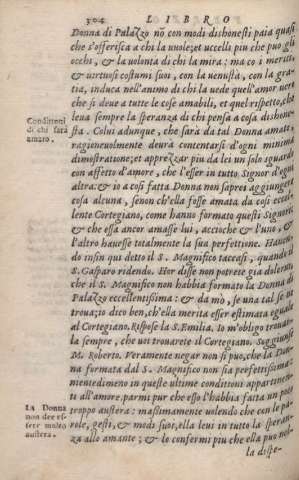 304 LIBRO
Donna di Palazzo nō con modi dishonesti paia quasi
che s'offerisca a chi la uuole; et uccelli piu che puo gli
occhi, & la uolonta di chi la mira: ma co i meriti,
& uirtuosi costumi suoi, con la uenustà, con la gra-
tia, induca nell'animo di chi la uede quell'amor uero
che si deue a tutte le cose amabili, et quel rispetto, che
leua sempre la speranza di chi pensa a cosa dishone-
Conditioni
di chi sarà
amato.
sta. Colui adunque, che sarà da tal Donna amato,
ragioneuolmente deurà contentarsi d'ogni minima
dimostratione; et apprezzar piu da lei un solo sguardo
con affetto d'amore, che l'esser in tutto Signor d'ogni
altra: & io a cosi fatta Donna non saprei aggiungere
cosa alcuna, senon ch'ella fosse amata da cosi eccel-
lente Cortegiano, come hanno formato questi Signori:
& che essa ancor amasse lui, accioche & l'uno, &
l'altro hauesse totalmente la sua perfettione. Hauen-
do insin qui detto il S. Magnifico taceasi, quando il
S. Gasparo ridendo. Hor disse non potrete gia dolerui
che il S. Magnifico non habbia formato la Donna di
Palazzo eccellentissima: & da mò, se una tal se ne
troua; io dico ben, ch'ella merita esser estimata eguale
al Cortegiano. Rispose la S. Emilia. Io m'obligo trouar-
la sempre, che uoi trouarete il Cortegiano. Suggiunse
M. Roberto. Veramente negar non si puo, che la Don-
na formata dal S. Magnifico non sia perfetissima:
mentedimeno in queste ultime conditioni appartenen-
ti all'amore, parmi pur che esso l'habbia fatta un poco
La Donna
non dee es-
ser molto
austera.
troppo austera: massimamente uolendo che con le pa-
role, gesti, & modi suoi, ella leui in tutto la speran-
za allo amante; & lo confermi piu che ella puo nel-
la dispe-